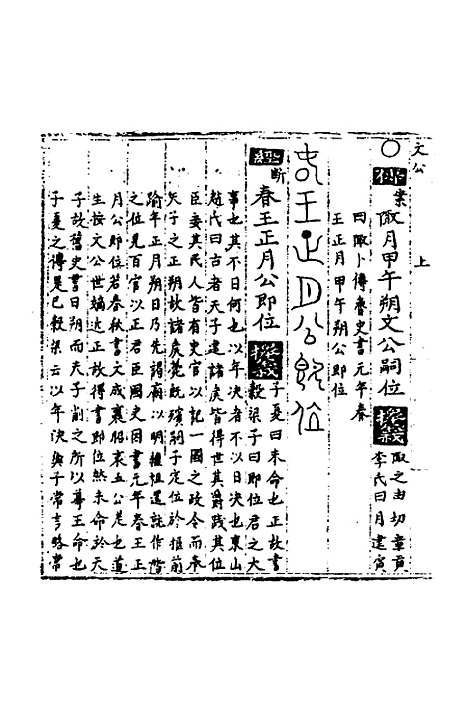 文公
上
○ 業陬月甲午朔文公嗣位
陬之由切章貢
李氏曰月建寅
曰陬卜傳魯史書元年春
王正月甲午朔公即位
王正月公即位
經 斷 春王正月公即位
子夏曰未命也正故書
穀梁子曰即位君之大
事也其不日何也以年決者不以日決也東山
趙氏曰古者天子建諸侯皆得世其爵踐其位
臣委其民人皆有史官以記一國之政令而奉
天子之正朔故諸侯薨既殯嗣子定位於柩前
踰年正月朔日乃先謁廟以明繼祖還就阼階
之位見百官以正君臣國史因書元年春王正
月公即位若春秋書文成襄昭哀五公是也道
生按文公世嫡近正故得書即位然未命於天
子故舊史書日朔而夫子削之所以尊王命也
子夏之傳是已穀梁云以年決與子常言略常